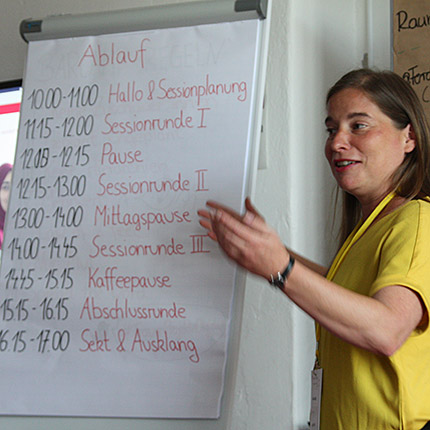 Ablauf
10.00-11.00 Hallo & Sessionplanung
11.15-12.00 Sessionrunde I
12.00-12.15 Pause
12.15-13.00 Sessionrunde II
13.00-14.00 Mittagspause
14.00-14.45 Sessionrunde III
14.45-15.15 Kaffeepause
15.15-16.15 Abschlussrunde
16.15-17.00 Sekt & Ausklang